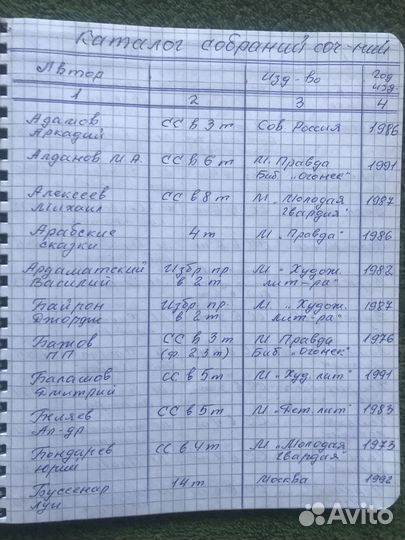 Каталог собраний соч-ний
Автор Изд-во Год изд.
1 2 3 4
Адамов СС в 3 т Сов. Россия 1986
Аркадий
Алданов М.А. СС в 6 т М. Правда 1991
Биб. „Огонек"
Алексеев СС в 8 т М „Молодая 1987
Михаил гвардия"
Арабские 4 т М „Правда" 1986
сказки
Ардаматский Избр. пр. М „Худож. 1982
Василий в 2 т лит-ра"
Байрон Избр. пр. М „Худож. 1987
Джордж в 2 т лит-ра"
Бажов СС в 3 т М Правда 1976
П П (ф. 2,3 т) Биб. „Огонек"
Балашов СС в 5 т М „Худ. лит" 1991
Дмитрий
Беляев СС в 5 т М „Дет. лит" 1983
Ал-др
Бондарев СС в 4 т М „Молодая 1973
Юрий гвардия"
Буссенар 14 т Москва 1992
Луи
Avito